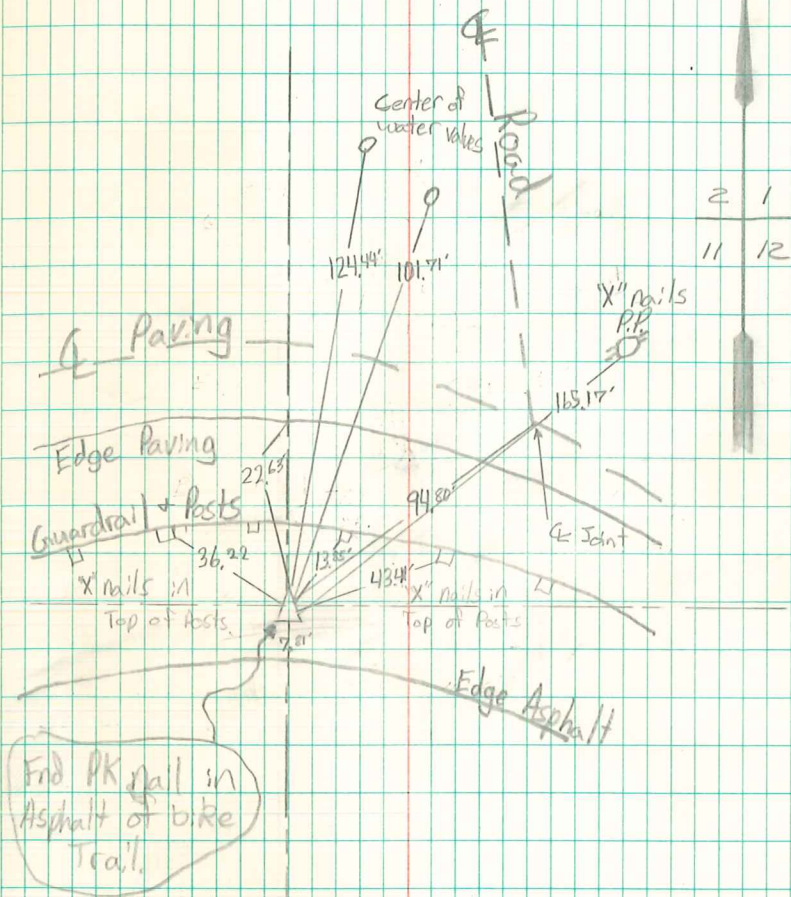 ℄
Road
Center of
water valves
2 1
11 12
124.44' 101.71'
"X" nails
P.P.
℄ Paving
165.17'
Edge Paving
22.63'
94.80'
Guardrail & Posts
℄ Joint
36.22
43.41'
"X" nails in
Top of Posts
"X" nails in
Top of Posts
7.81'
Edge Asphalt
Fnd PK nail in
Asphalt of bike
Trail.